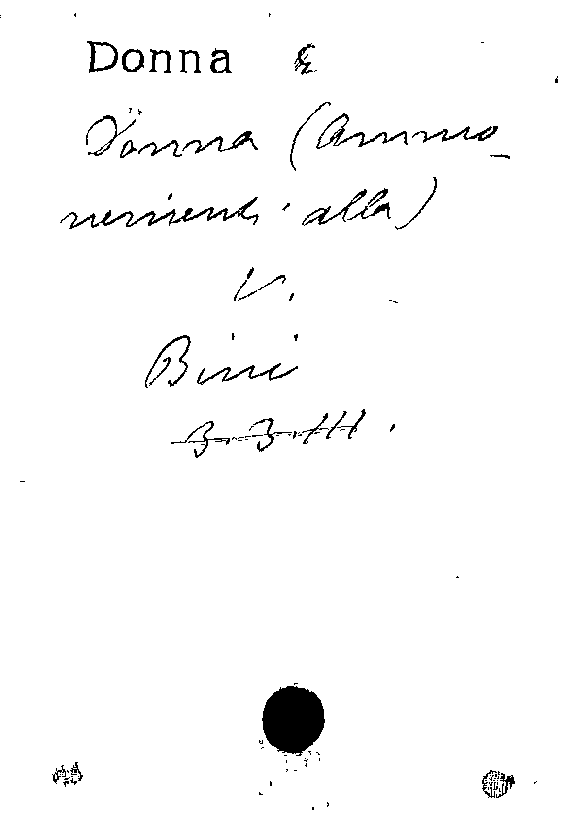 Donna
Donna (Ammo_
nimenti alla)
V.
Bini
3.3.III.